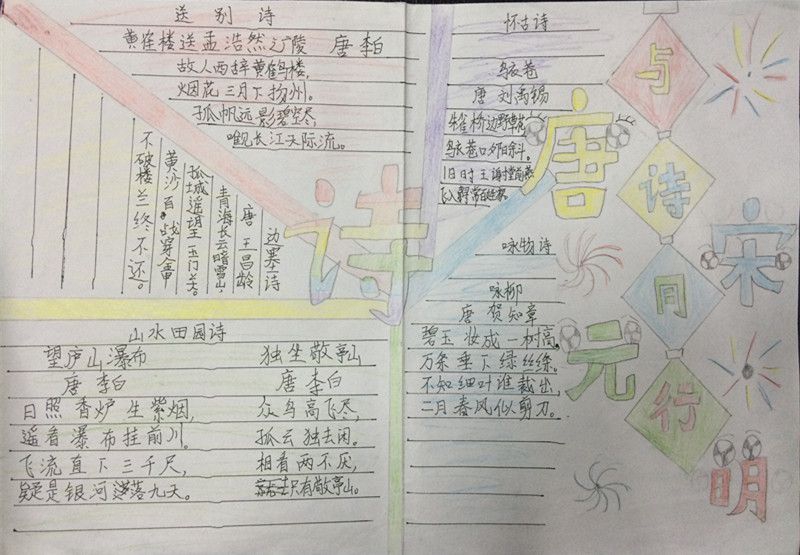 送别诗
黄隺楼送孟浩然之广陵 唐 李白
故人西辞黄鹤楼,
烟花三月下扬州。
孤帆远影碧空尽
唯见长江天际流。
边塞诗
唐 王昌龄
青海长云暗雪山,
孤城遥望玉门关。
黄沙百战穿金甲
不破楼兰终不还。
山水田园诗
望庐山瀑布
唐 李白
日照香炉生紫烟,
遥看瀑布挂前川。
飞流直下三千尺,
疑是银河落九天。
独坐敬亭山
唐 李白
众鸟高飞尽,
孤云独去闲。
相看两不厌,
只有敬亭山。
诗
唐
宋
元
明
怀古诗
乌衣巷
唐 刘禹锡
朱雀桥边野草花
乌衣巷口夕阳斜。
旧时王谢堂前燕
飞入寻常百姓家。
咏物诗
咏柳
唐 贺知章
碧玉妆成一树高。
万条垂下绿丝绦。
不知细叶谁裁出,
二月春风似剪刀。
与
诗
同
行